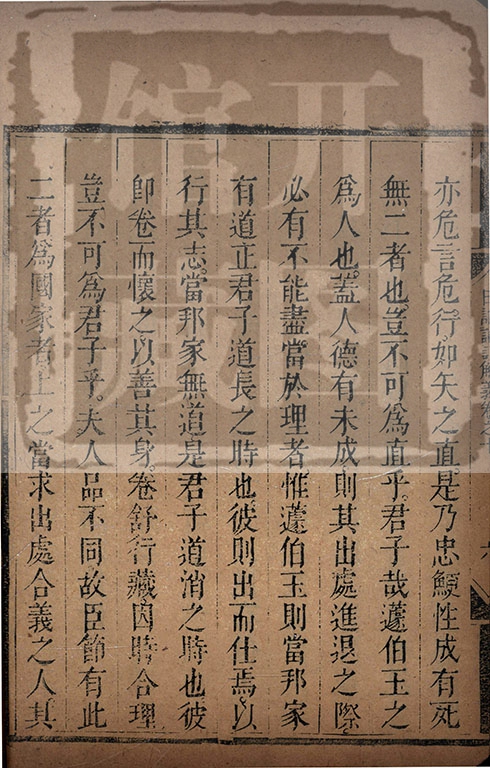 亦危言危行。如矢之直是乃忠鯁性成有死
無二者也。豈不可爲直乎。君子哉蘧伯玉之
爲人也。蓋人德有未成則其出處進退之際。
必有不能盡當於理者惟蘧伯玉則當邦家
有道正君子道長之時也彼則出而仕焉以
行其志。當邦家無道是君子道消之時也彼
卽卷而懷之以善其身。卷舒行藏因時合理
豈不可爲君子乎。夫人品不同故臣節有此
二者爲國家者上之當求出處合義之人其